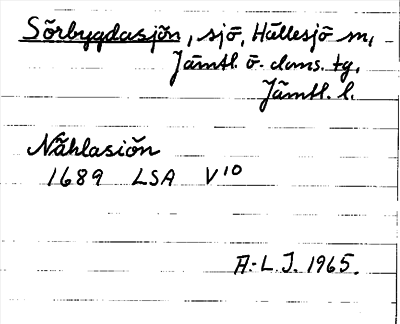 Sörbygdasjön, sjö, Hällesjö sn,
Jämtl. ö. doms. tg.
Jämtl. l.
Nählasiön
1689 LSA V10
A.-L. J. 1965.